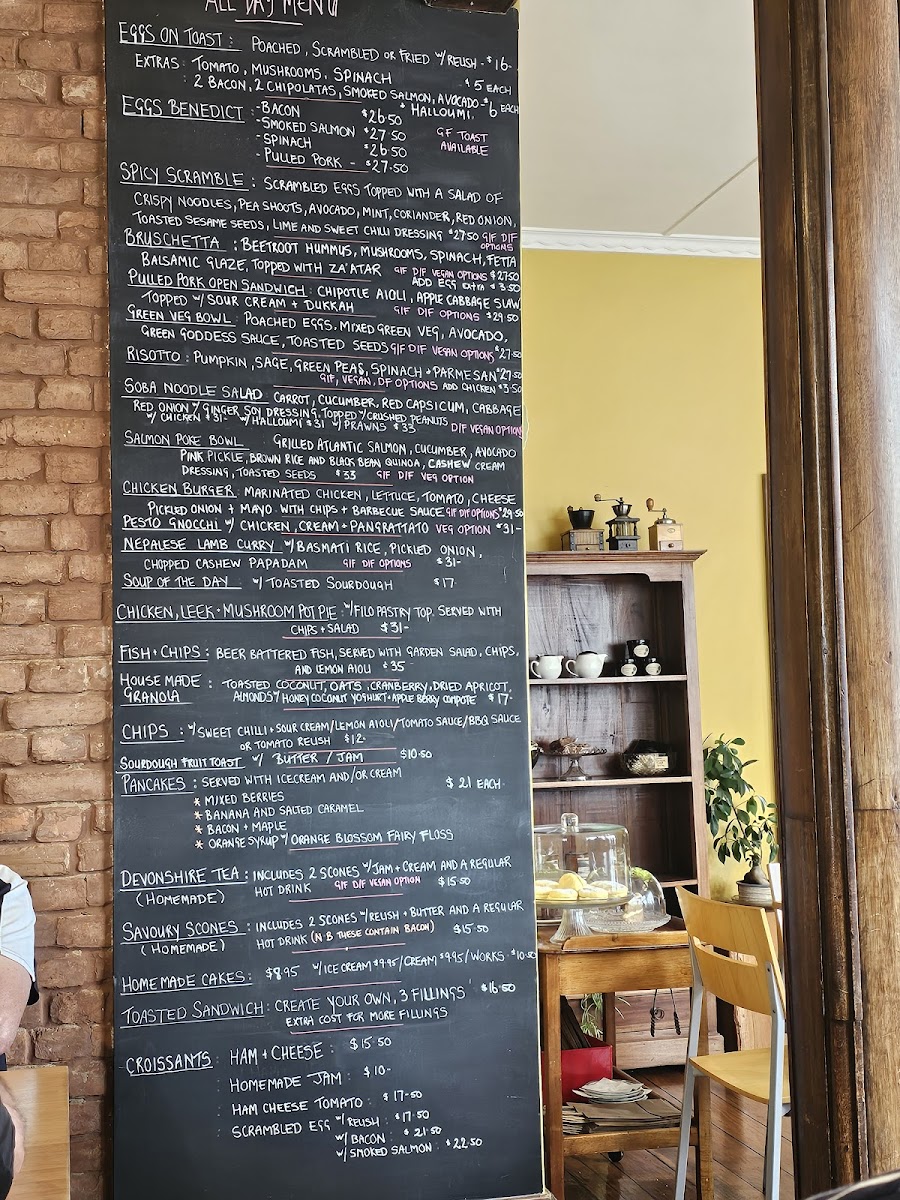 ALL DAY MENU
EGGS ON TOAST : POACHED, SCRAMBLED OR FRIED W/ RELISH - $16-
EXTRAS : TOMATO, MUSHROOMS, SPINACH - $5 EACH
: 2 BACON, 2 CHIPOLATAS, SMOKED SALMON, AVOCADO - $6 EACH
* HALLOUMI.
EGGS BENEDICT : - BACON $26.50
- SMOKED SALMON $27.50 GF TOAST
- SPINACH $26.50 AVAILABLE
- PULLED PORK - $27.50
SPICY SCRAMBLE : SCRAMBLED EGGS TOPPED WITH A SALAD OF
CRISPY NOODLES, PEA SHOOTS, AVOCADO, MINT, CORIANDER, RED ONION,
TOASTED SESAME SEEDS, LIME AND SWEET CHILLI DRESSING $27.50 G/F D/F OPTIONS
BRUSCHETTA : BEETROOT HUMMUS, MUSHROOMS, SPINACH, FETTA
BALSAMIC GLAZE, TOPPED WITH ZA'ATAR G/F D/F VEGAN OPTIONS $27.50
ADD EGG EXTRA $3.50
PULLED PORK OPEN SANDWICH : CHIPOTLE AIOLI, APPLE CABBAGE SLAW
TOPPED W/ SOUR CREAM + DUKKAH G/F D/F OPTIONS $29.50
GREEN VEG BOWL : POACHED EGGS, MIXED GREEN VEG, AVOCADO,
GREEN GODDESS SAUCE, TOASTED SEEDS G/F D/F VEGAN OPTIONS $27.50
RISOTTO : PUMPKIN, SAGE, GREEN PEAS, SPINACH + PARMESAN $27.50
G/F, VEGAN, DF OPTIONS ADD CHICKEN $3.50
SOBA NOODLE SALAD CARROT, CUCUMBER, RED CAPSICUM, CABBAGE
RED ONION W/ GINGER SOY DRESSING, TOPPED W/ CRUSHED PEANUTS
W/ CHICKEN $31- W/ HALLOUMI $31 W/ PRAWNS $33 D/F VEGAN OPTION
SALMON POKE BOWL GRILLED ATLANTIC SALMON, CUCUMBER, AVOCADO
PINK PICKLE, BROWN RICE AND BLACK BEAN QUINOA, CASHEW CREAM
DRESSING, TOASTED SEEDS $33 G/F D/F VEG OPTION
CHICKEN BURGER MARINATED CHICKEN, LETTUCE, TOMATO, CHEESE
PICKLED ONION + MAYO WITH CHIPS + BARBECUE SAUCE G/F D/F OPTIONS $29.50
PESTO GNOCCHI W/ CHICKEN, CREAM + PANGRATTATO VEG OPTION $31-
NEPALESE LAMB CURRY W/ BASMATI RICE, PICKLED ONION,
CHOPPED CASHEW PAPADAM G/F D/F OPTIONS $31-
SOUP OF THE DAY W/ TOASTED SOURDOUGH $17
CHICKEN, LEEK + MUSHROOM POT PIE : W/ FILO PASTRY TOP. SERVED WITH
CHIPS + SALAD $31-
FISH + CHIPS : BEER BATTERED FISH, SERVED WITH GARDEN SALAD, CHIPS,
AND LEMON AIOLI $35
HOUSE MADE GRANOLA : TOASTED COCONUT, OATS, CRANBERRY, DRIED APRICOT,
ALMONDS W/ HONEY COCONUT YOGHURT + APPLE BERRY COMPOTE $17-
CHIPS : W/ SWEET CHILLI + SOUR CREAM/LEMON AIOLI/TOMATO SAUCE/BBQ SAUCE
OR TOMATO RELISH $12-
SOURDOUGH FRUIT TOAST W/ BUTTER / JAM $10.50
PANCAKES : SERVED WITH ICECREAM AND/OR CREAM $21 EACH
* MIXED BERRIES
* BANANA AND SALTED CARAMEL
* BACON + MAPLE
* ORANGE SYRUP W/ ORANGE BLOSSOM FAIRY FLOSS
DEVONSHIRE TEA : INCLUDES 2 SCONES W/ JAM + CREAM AND A REGULAR
(HOMEMADE) HOT DRINK G/F D/F VEGAN OPTION $15.50
SAVOURY SCONES : INCLUDES 2 SCONES W/ RELISH + BUTTER AND A REGULAR
(HOMEMADE) HOT DRINK (N.B THESE CONTAIN BACON) $15.50
HOMEMADE CAKES : $8.95 W/ ICE CREAM $9.95/CREAM $9.95/WORKS - $10.50
TOASTED SANDWICH : CREATE YOUR OWN, 3 FILLINGS $16.50
EXTRA COST FOR MORE FILLINGS
CROISSANTS : HAM + CHEESE : $15.50
: HOMEMADE JAM : $10-
: HAM CHEESE TOMATO : $17.50
: SCRAMBLED EGG W/ RELISH : $17.50
W/ BACON : $21.50
W/ SMOKED SALMON : $22.50